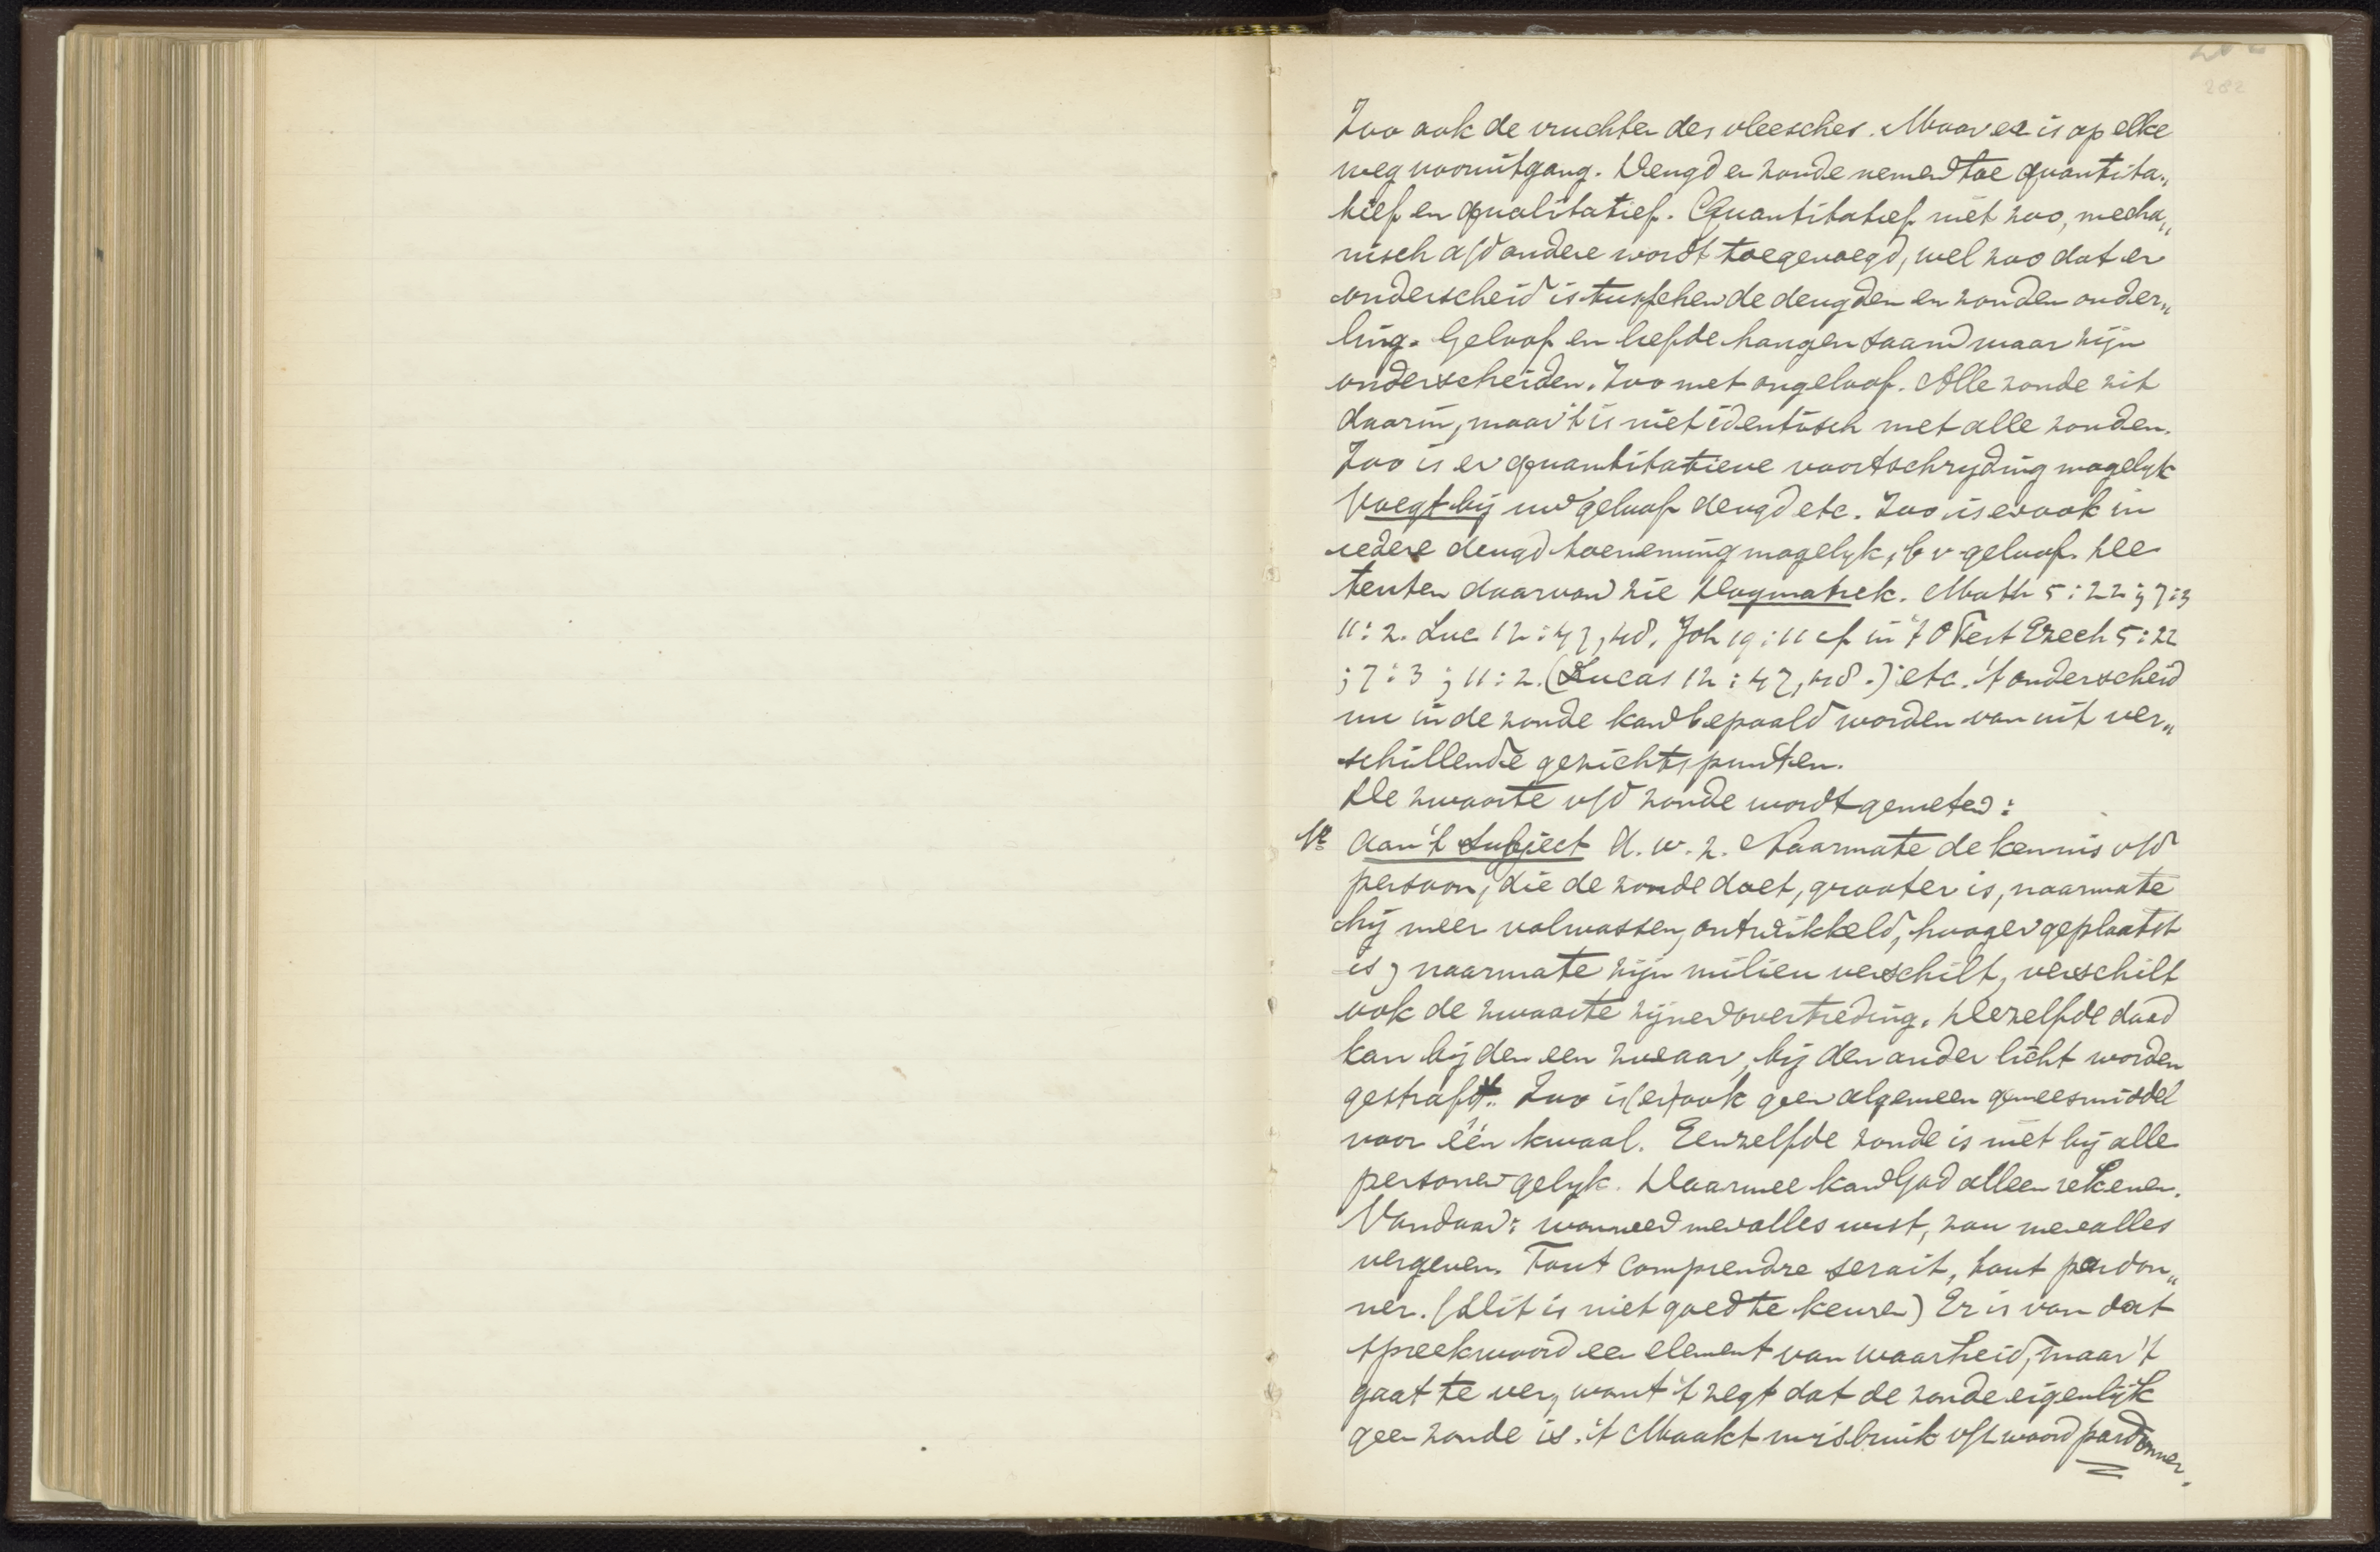 282
Zoo ook de vruchten des vleesches. Maar er is op elke
weg vooruitgang. Deugd en zonde nemen toe quantita„
tief en qualitatief. Quantitatief niet zoo, mecha„
nisch a/d andere wordt toegevoegd, wel zoo dat er
onderscheid is tusschen de deugden en zonden onder„
ling. Geloof en liefde hangen saam maar zijn
onderscheiden. Zoo met ongeloof. Alle zonde zit
daarin, maar 't is niet identisch met alle zonden.
Zoo is er quantitatieve voortschryding mogelyk
Voegt bij uw geloof deugd etc. Zoo is er ook in
iedere deugd toeneming mogelyk, b v geloof. De
texten daarvan zie Dogmatiek. Math 5:22; 7:3
11:2. Luc 12:47,48. Joh 19:11 cf in 't O Test Ezech 5:22
; 7:3 ; 11:2. (Lucas 12:47,48.) etc. 't onderscheid
nu in de zonde kan bepaald worden van uit ver„
schillende gezichtspunten.
De zwaarte v/d zonde wordt gemeten:
1e aan 't subject d.w.z. Naarmate de kennis v/d
persoon, die de zonde doet, grooter is, naarmate
hij meer volwassen, ontwikkeld, hooger geplaatst
is, naarmate zijn milieu verschilt, verschilt
ook de zwaarte zijner overtreding. Dezelfde daad
kan bij den een zwaar, bij den ander licht worden
gestraft. Zoo is (er) ook geen algemeen geneesmiddel
voor één kwaal. Eenzelfde zonde is niet bij alle
personen gelyk. Daarmee kan God alleen rekenen.
Vandaar: wanneer men alles wist, zou men alles
vergeven. Tout comprendre serait, tout pardon„
ner. (Dit is niet goed te keuren) Er is van dat
spreekwoord een element van waarheid, maar 't
gaat te ver, want 't zegt dat de zonde eigenlijk
geen zonde is. 't Maakt misbruik v/h woord pardonner.